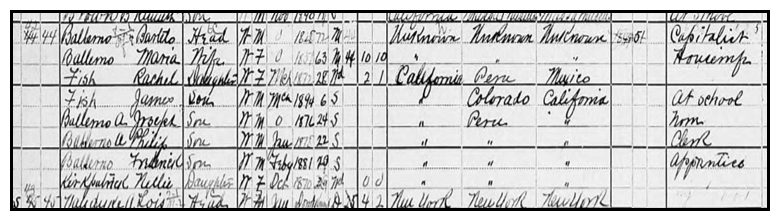 Son W M Nov 1890 S California At School
44 44 Ballerno Bartlo Head W M O 1828 72 M Unknown Unknown Unknown 51 Capitalist
Ballerno Maria Wife W F O 63 M 44 10 10 " " " Housewife
Fish Rachel Daughter W F Mch 28 Wd 2 1 California Peru Mexico
Fish James Son W M Mch 1894 6 S " Colorado California At school
Ballerno A Joseph Son W M O 1876 24 S " Peru " Non
Ballerno A Philip Son W M Jan 1878 22 S " " " Clerk
Ballerno Fredrick Son W M Feby 1881 29 S " " " Apprentice
Kirkpatrick Nellie Daughter W F Oct 1870 29 Wd 0 0 " " "
45 Lois Head W F Jan D 4 2 New York New York New York